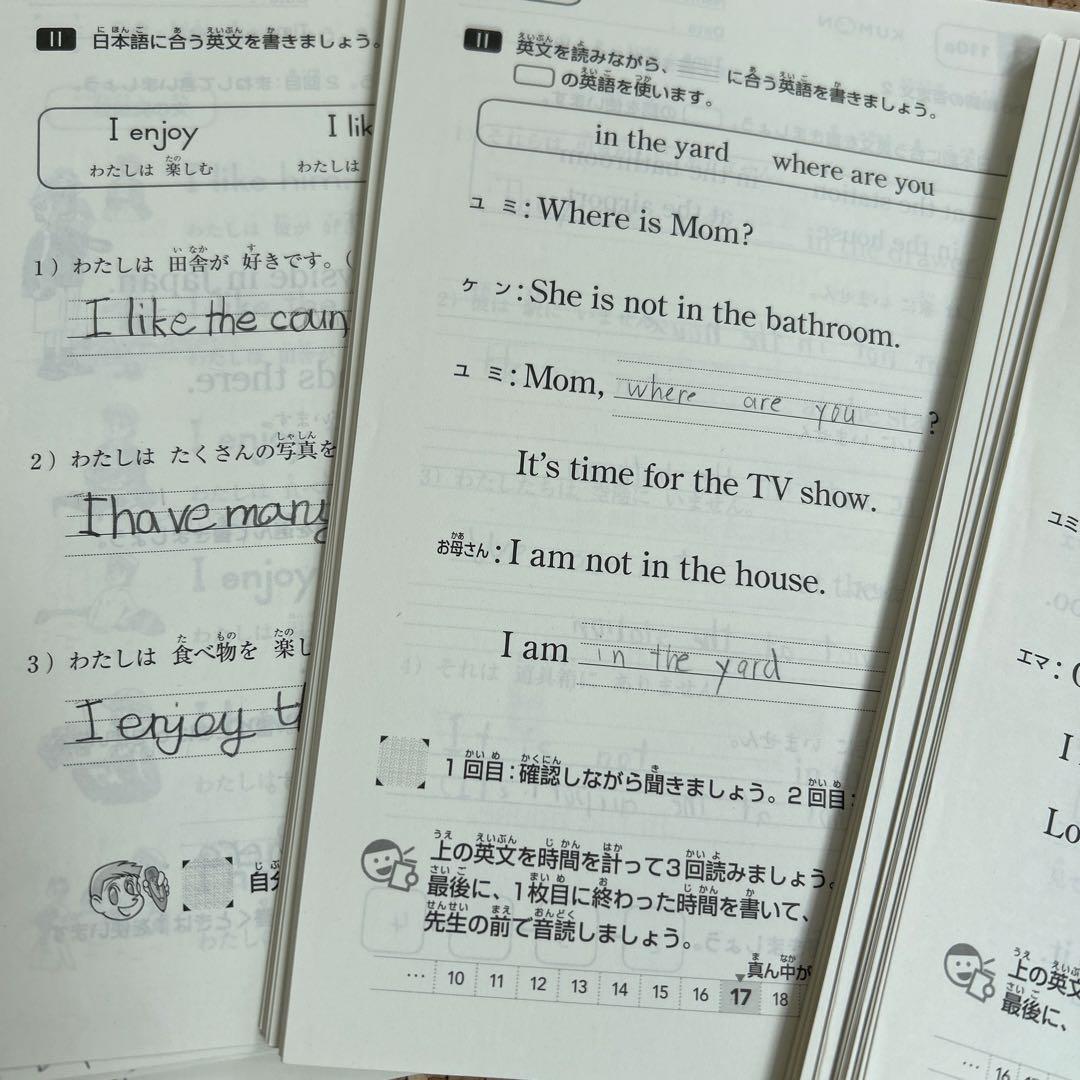 II 日本語に合う英文を書きましょう。
I enjoy I lik
わたしは 楽しむ わたしは
1) わたしは 田舎が 好きです。(
I like the coun
2) わたしは たくさんの写真を
I have many
3) わたしは 食べ物を 楽し
I enjoy t
自分
II 英文を読みながら、 に合う英語を書きましょう。
の英語を使います。
in the yard where are you
ユミ：Where is Mom?
ケン：She is not in the bathroom.
ユミ：Mom, where are you ?
It's time for the TV show.
お母さん：I am not in the house.
I am in the yard
1回目：確認しながら聞きましょう。2回目：
上の英文を時間を計って3回読みましょう。
最後に、1枚目に終わった時間を書いて、
先生の前で音読しましょう。
真ん中が
… 10 11 12 13 14 15 16 17 18
ユミ
エマ：
I
Lo
上の英文
最後に、
… 16